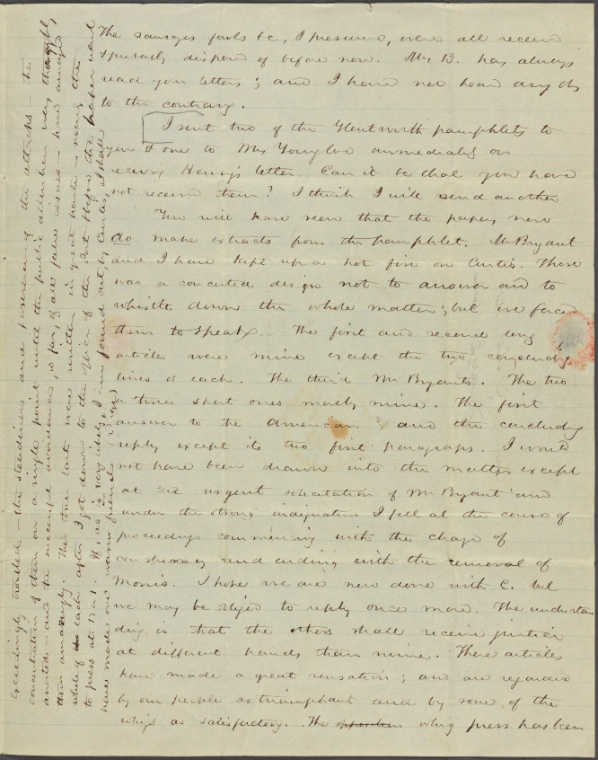 The sausages fowls &c, I presume, were all received
& properly disposed of before now. Mr B. has always
read your letters; and I have not heard any thing
to the contrary.
I sent two of the Glentworth pamphlets to
you & one to Mrs immediately on
receiving Henry's letter. Can it be that you have
not received them? I think I will send another
You will have seen that the papers now
do make extracts from the pamphlet. Mr Bryant
and I have kept up a hot fire on Curtis. There
was a concerted design not to answer and to
whistle down the whole matter; but we forced
them to speak. The first and second long
articles were mine except the two concluding
lines of each. The third Mr Bryants. The two
or three short ones mostly mine. The first
answer to the American and the concluding
reply except its two first paragraphs. I would
not have been drawn into the matter except
at the urgent solicitation of Mr Bryant and
under the strong indignation I felt at the course of
proceedings commencing with the charge of
conspiracy and ending with the removal of
Morris. I hope we are now done with C. but
we may be obliged to reply once more. The understan
ding is that the others shall receive justice
at different hands than mine. These articles
have made a great sensation; and are regarded
by our people as triumphant and by some of the
whigs as satisfactory. The whig press has been
exceedingly troubled — the steadiness and of the attacks — the
concentration of them on a single point until the public attention was thoroughly
arrested — and the avoidance, so far, of all false issues — have annoyed
them amazingly. The three last were written in great haste — using the
whole of each after I got down to the office of the Post before the paper went
to press at 12 or 1. If, as is very likely, I am found out by Curtis, I shall
have made one warm